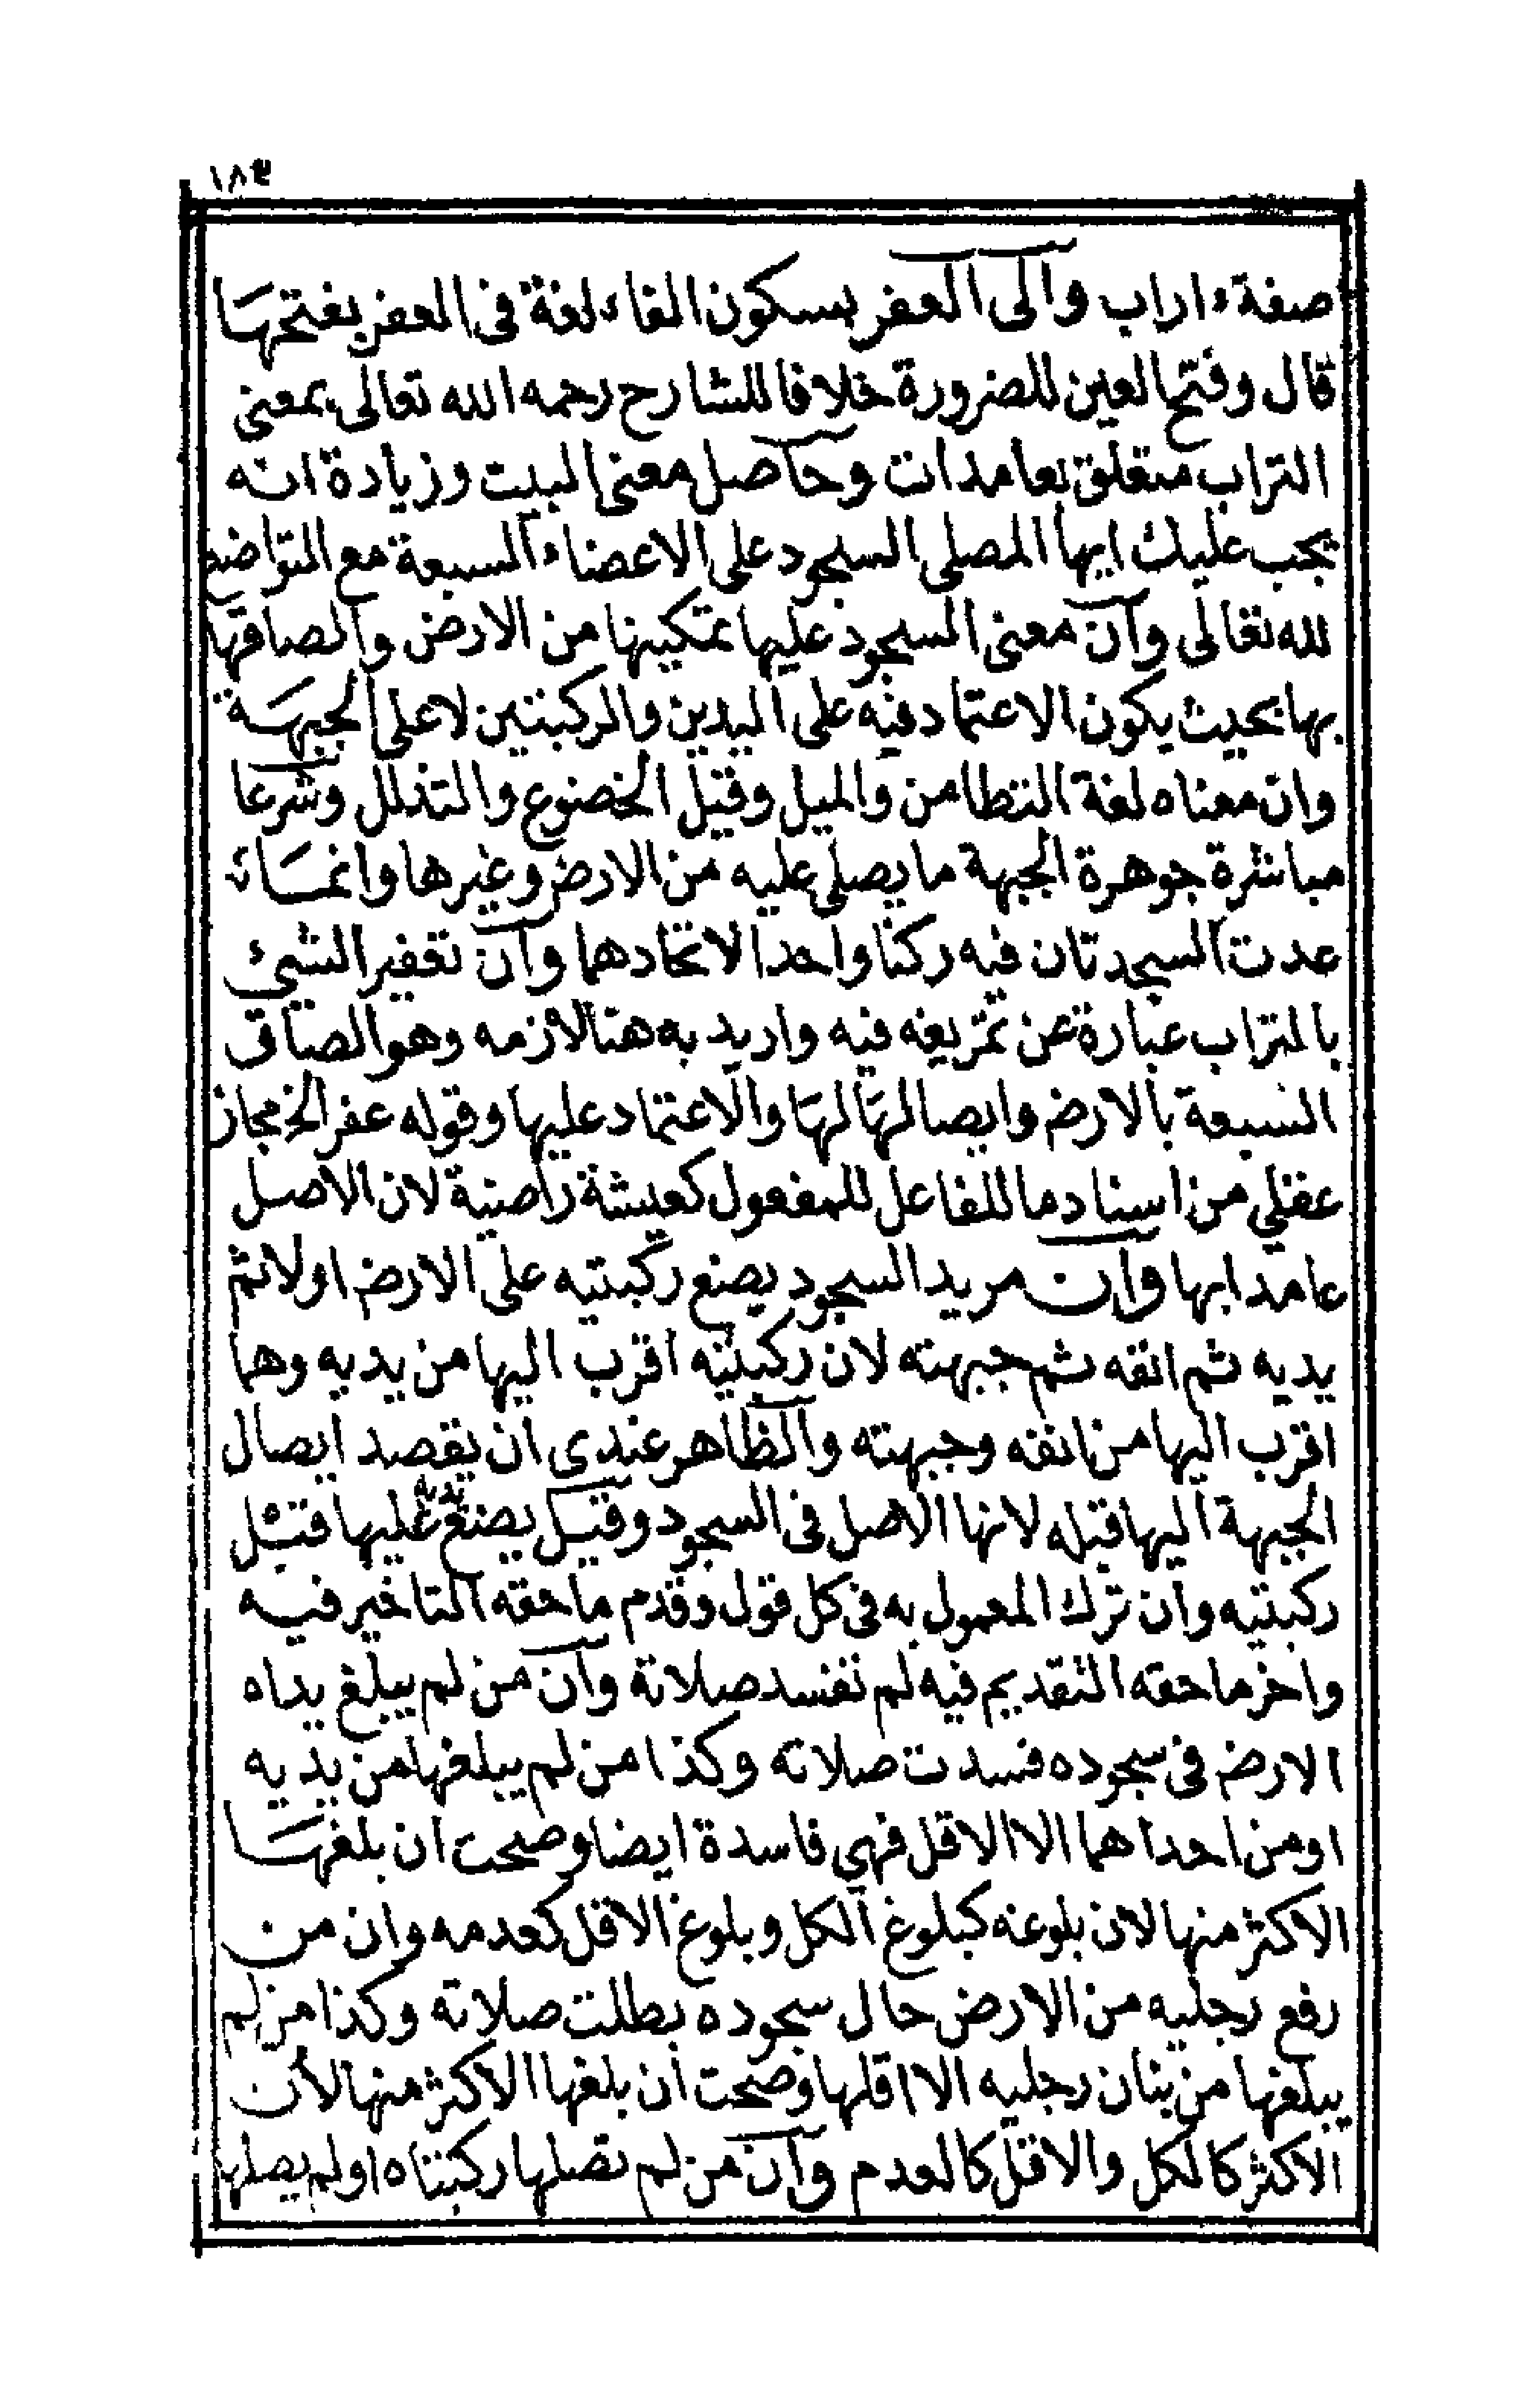 ١٨٣
صفة ءاراب والى العفر بسكون الفاء لغة فى العفر بفتحها
قال وفتح العين للضرورة خلافا للشارح رحمه الله تعالى بمعنى
التراب متعلق بعامدات وحاصل معنى البيت وزيادة انه
يجب عليك ايها المصلى السجود على الاعضاء السبعة مع التواضع
لله تعالى وان معنى السجود عليها تمكينها من الارض والصاقها
بها بحيث يكون الاعتماد فيه على اليدين والركبتين لا على الجبهة
وان معناه لغة التطامن والميل وقيل الخضوع والتذلل وشرعا
مباشرة جوهرة الجبهة ما يصلى عليه من الارض وغيرها وانما
عدت السجدتان فيه ركنا واحدا لاتحادهما وان تعفير الشيئ
بالتراب عبارة عن تمريغه فيه واريد به هنا لازمه وهو الصاق
السبعة بالارض وايصالها لها والاعتماد عليها وقوله عفر الخ مجاز
عقلي من اسناد ما للفاعل للمفعول كعيشة راضية لان الاصل
عامدا بها وان مريد السجود يضع ركبتيه على الارض اولا ثم
يديه ثم انفه ثم جبهته لان ركبتيه اقرب اليها من يديه وهما
اقرب اليها من انفه وجبهته والظاهر عندى ان يقصد ايصال
الجبهة اليها قبله لانها الاصل فى السجود وقيل يضع يديه عليها قبل
ركبتيه وان ترك المعمول به فى كل قول وقدم ما حقه التاخير فيه
واخر ما حقه التقديم فيه لم تفسد صلاته وان من لم يبلغ يداه
الارض فى سجوده فسدت صلاته وكذا من لم يبلغها من يديه
او من احداهما الا الاقل فهي فاسدة ايضا وصحت ان بلغها
الاكثر منها لان بلوغه كبلوغ الكل وبلوغ الاقل كعدمه وان من
رفع رجليه من الارض حال سجوده بطلت صلاته وكذا من لم
يبلغها من بنان رجليه الا اقلها وصحت ان بلغها الاكثر منها لان
الاكثر كالكل والاقل كالعدم وان من لم تصلها ركبتاه او لم يصلها